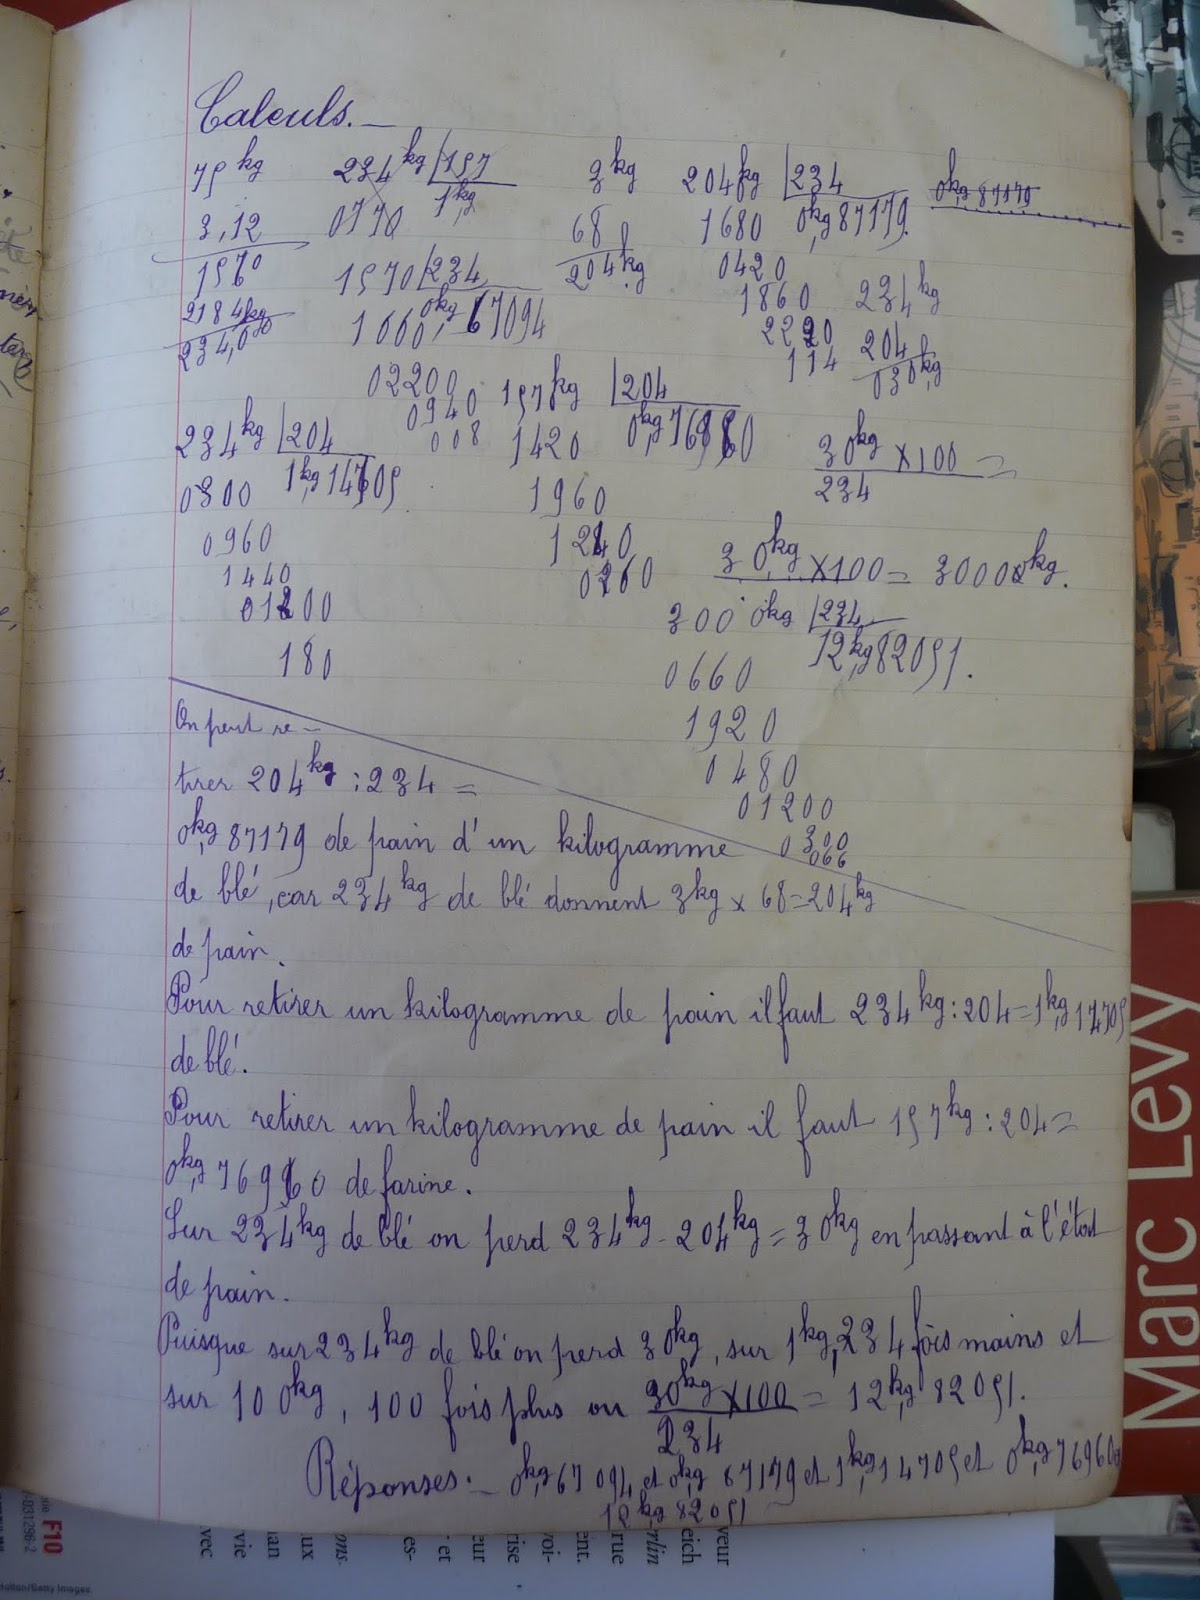 Calculs. —
75 kg
3,12
1560
2184 kg
234,0
234 kg | 157
0770 1 kg
1570 | 234
1660 0 kg, 67094
02200
0940
008
3 kg
68
204 kg
204 kg | 234
1680 0 kg, 87179
0420
1860
2220
114
0 kg, 87179
234 kg
204
030 kg
234 kg | 204
0300 1 kg, 14705
0960
1440
01200
180
157 kg | 204
1420 0 kg, 76960
1960
1240
0260
30 kg × 100 =
234
30 kg × 100 = 3000 kg.
3000 kg | 234
0660 12 kg, 82051.
1920
0480
01200
0300
066
On peut re-
tirer 204 kg : 234 =
0 kg, 87179 de pain d'un kilogramme
de blé, car 234 kg de blé donnent 3 kg × 68 = 204 kg
de pain.
Pour retirer un kilogramme de pain il faut 234 kg : 204 = 1 kg, 14705
de blé.
Pour retirer un kilogramme de pain il faut 157 kg : 204 =
0 kg, 76960 de farine.
Sur 234 kg de blé on perd 234 kg - 204 kg = 30 kg en passant à l'état
de pain.
Puisque sur 234 kg de blé on perd 30 kg, sur 1 kg, 234 fois moins et
sur 100 kg, 100 fois plus ou 30 kg × 100 = 12 kg, 82051.
234
Réponses. — 0 kg, 67094 et 0 kg, 87179 et 1 kg, 14705 et 0 kg, 76960
12 kg 82051
Marc Levy
F10
vec
vie
man
ux
ons.
es-
- et
eur
rise
voi-
ent.
rue
rlin
eich
veur